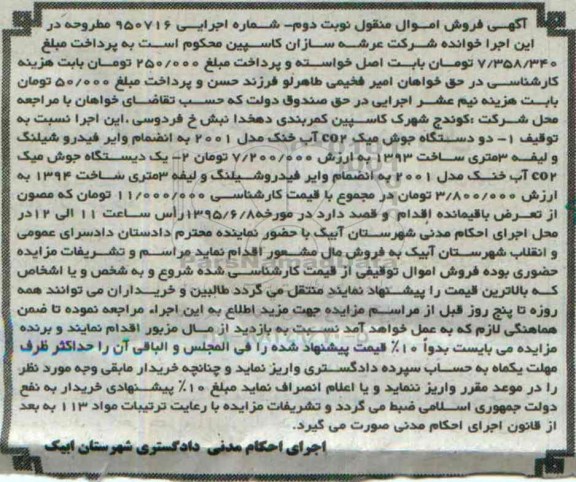 آگهی فروش اموال منقول نوبت دوم- شماره اجرایی ۹۵۰۷۱۶ مطروحه در
این اجرا خوانده شرکت عرشه سازان کاسپین محکوم است به پرداخت مبلغ
۷/۳۵۸/۳۴۰ تومان بابت اصل خواسته و پرداخت مبلغ ۲۵۰/۰۰۰ تومان بابت هزینه
کارشناسی در حق خواهان امیر فخیمی طاهرلو فرزند حسن و پرداخت مبلغ ۵۰/۰۰۰ تومان
بابت هزینه نیم عشر اجرایی در حق صندوق دولت که حسب تقاضای خواهان با مراجعه
محل شرکت :کوندج شهرک کاسپین کمربندی دهخدا نبش خ فردوسی ،این اجرا نسبت به
توقیف ۱- دو دستگاه جوش میک CO2 آب خنک مدل ۲۰۰۱ به انضمام وایر فیدرو شیلنگ
و لیفه ۳متری ساخت ۱۳۹۳به ارزش ۷/۲۰۰/۰۰۰ تومان ۲- یک دیستگاه جوش میک
CO2 آب خنک مدل ۲۰۰۱ به انضمام وایر فیدروشیلنگ و لیفه ۳متری ساخت ۱۳۹۴ به
ارزش ۳/۸۰۰/۰۰۰ تومان در مجموع با قیمت کارشناسی ۱۱/۰۰۰/۰۰۰ تومان که مصون
از تعرض باقیمانده اقدام و قصد دارد در مورخه۱۳۹۵/۶/۸رأس ساعت ۱۱ الی ۱۲در
محل اجرای احکام مدنی شهرستان آبیک با حضور نماینده محترم دادستان دادسرای عمومی
و انقلاب شهرستان آبیک به فروش مال مشمور اقدام نماید مراسم و تشریفات مزایده
حضوری بوده فروش اموال توقیفی از قیمت کارشناسی شده شروع و به شخص و یا اشخاص
که بالاترین قیمت را پیشنهاد نمایند منتقل می گردد طالبین و خریداران می توانند همه
روزه تا پنج روز قبل از مراسم مزایده جهت مزید اطلاع به این اجراء مراجعه نموده تا ضمن
هماهنگی لازم که به عمل خواهد آمد نسبت به بازدید از مال مزبور اقدام نمایند و برنده
مزایده می بایست بدواً ۱۰٪ قیمت پیشنهاد شده را فی المجلس و الباقی آن را حداکثر ظرف
مهلت یکماه به حساب سپرده دادگستری واریز نماید و چنانچه خریدار مابقی وجه مورد نظر
را در موعد مقرر واریز ننماید و یا اعلام انصراف نماید مبلغ ۱۰٪ پیشنهادی خریدار به نفع
دولت جمهوری اسلامی ضبط می گردد و تشریفات مزایده با رعایت ترتیبات مواد ۱۱۳ به بعد
از قانون اجرای احکام مدنی صورت می گیرد.
اجرای احکام مدنی دادگستری شهرستان ابیک